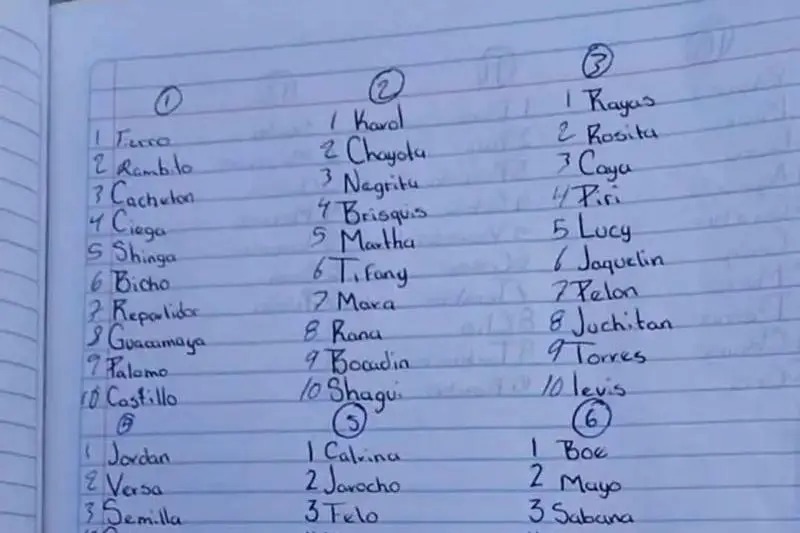 ①
1 Ferro
2 Rambito
3 Cacheton
4 Ciega
5 Shinga
6 Bicho
7 Repartidor
8 Guacamaya
9 Palomo
10 Castillo
②
1 Karol
2 Chayota
3 Negrita
4 Brisquis
5 Martha
6 Tifany
7 Mara
8 Rana
9 Bocadin
10 Shagui
③
1 Rayas
2 Rosita
3 Caya
4 Piri
5 Lucy
6 Jaquelin
7 Pelon
8 Juchitan
9 Torres
10 levis
④
1 Jordan
2 Versa
3 Semilla
⑤
1 Calvina
2 Jarocho
3 Telo
⑥
1 Boe
2 Mayo
3 Sabana